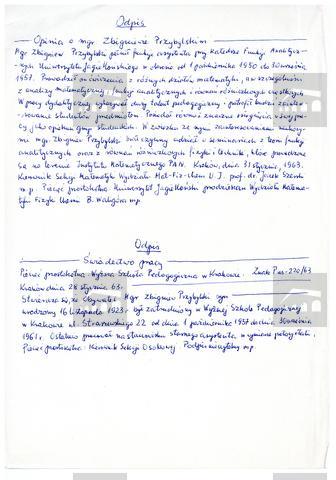 Odpis
Opinia o mgr. Zbigniewie Przybylskim
Mgr Zbigniew Przybylski pełnił funkcje asystenta przy Katedrze Funkcji Analitycz-
nych Uniwersytetu Jagiellońskiego w okresie od 1 października 1950 do 30 września
1957. Prowadził on ćwiczenia z różnych działów matematyki, a w szczególności
z analizy matematycznej, funkcji analitycznych i równań różniczkowych cząstkowych
W pracy dydaktycznej wykazywał duży talent pedagogiczny i potrafił bardzo zainte-
resowanie studentów przedmiotem. Ponadto również znaczne osiągnięcia w swej pra-
cy jako opiekun grup studenckich. W związku ze swymi zainteresowaniami naukowy-
mi mgr. Zbigniew Przybylski brał czynny udział w seminariach z teorii funkcji
analitycznych oraz z równań różniczkowych fizyki i techniki, które prowadzone
są na terenie Instytutu Matematycznego PAN. Kraków, dnia 31 stycznia, 1963.
Kierownik Sekcji Matematyki Wydziału Mat-Fiz-chem U.J. prof. dr Jacek Szarski
m.p. Pieczęć prostokątna: Uniwersytet Jagielloński prodziekan Wydziału Matema-
tyki Fizyki Chemii B. m.p.
Odpis
Świadectwo pracy
Pieczęć prostokątna - Wyższa Szkoła Pedagogiczna w Krakowie. Znak Pers-270/63
Kraków dnia 28 stycznia 63.
Stwierdza się, że Obywatel Mgr Zbigniew Przybylski syn
urodzony 16 listopada 1923. był zatrudniony w Wyższej Szkole Pedagogicznej
w Krakowie ul. Straszewskiego 22 od dnia 1 października 1957 do dnia 30 września
1961 r. Ostatnio pracował na stanowisku starszego asystenta w wymiarze pełny etat.
Pieczęć prostokątna: Kierownik Sekcji Osobowej Podpis nieczytelny m.p.